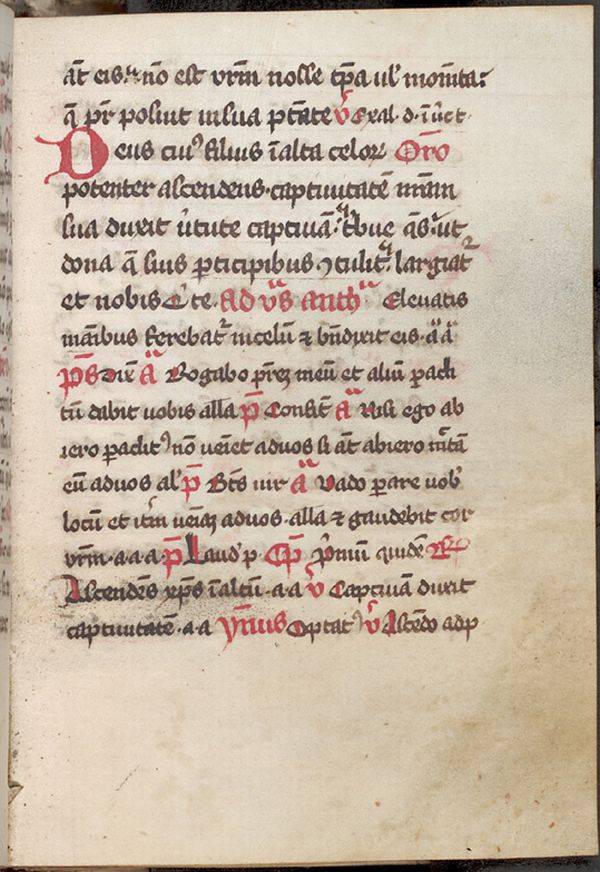 at̄ eis · nō est vr̄m nosse tp̄a ul' mom̄ta:
q̄ pr̄ posuit in sua pt̄ate v̊ Exal. d. ī ūt͛t.
Deus cui᾽ filius ī alta celoꝝ Orō
potenter ascendens · captiuitatē nr̄am
sua duxit ūtute captiuā · tbue q̄s · ut
dona q̄ suis ꝑticipibus ꝯtulit largiat᾽
et nobis P te. Ad vꝰs anthᵃ Eleuatis
manibus ferebat᾽ in celū ⁊ bn̄dixit eis · a͞ a͞
p̄s Dix̄ a͞ Rogabo pr̄eꝫ meū et aliū ꝑacli
tū dabit uobis alla p̄ Confit̄ a͞ Nisi ego ab
iero ꝑaclit᾽ nō ueīet ad uos si at̄ abiero mi̅tā
eū ad uos al' p̄ Bt̄s uir a͞ Vado ꝑare uob'
locū et itm̄ ueīaꝫ ad uos · alla ⁊ gaudebit cor
vr̄m · a · a · a p̄ Laud' p Cp̄ P̍mū quidē ℟
Ascendēs xp̄s ī altū · a · a v̊ Captiuā duxit
captiuitatē · a · a ymnus Optat᾽ v̊ Ascēdo ad p